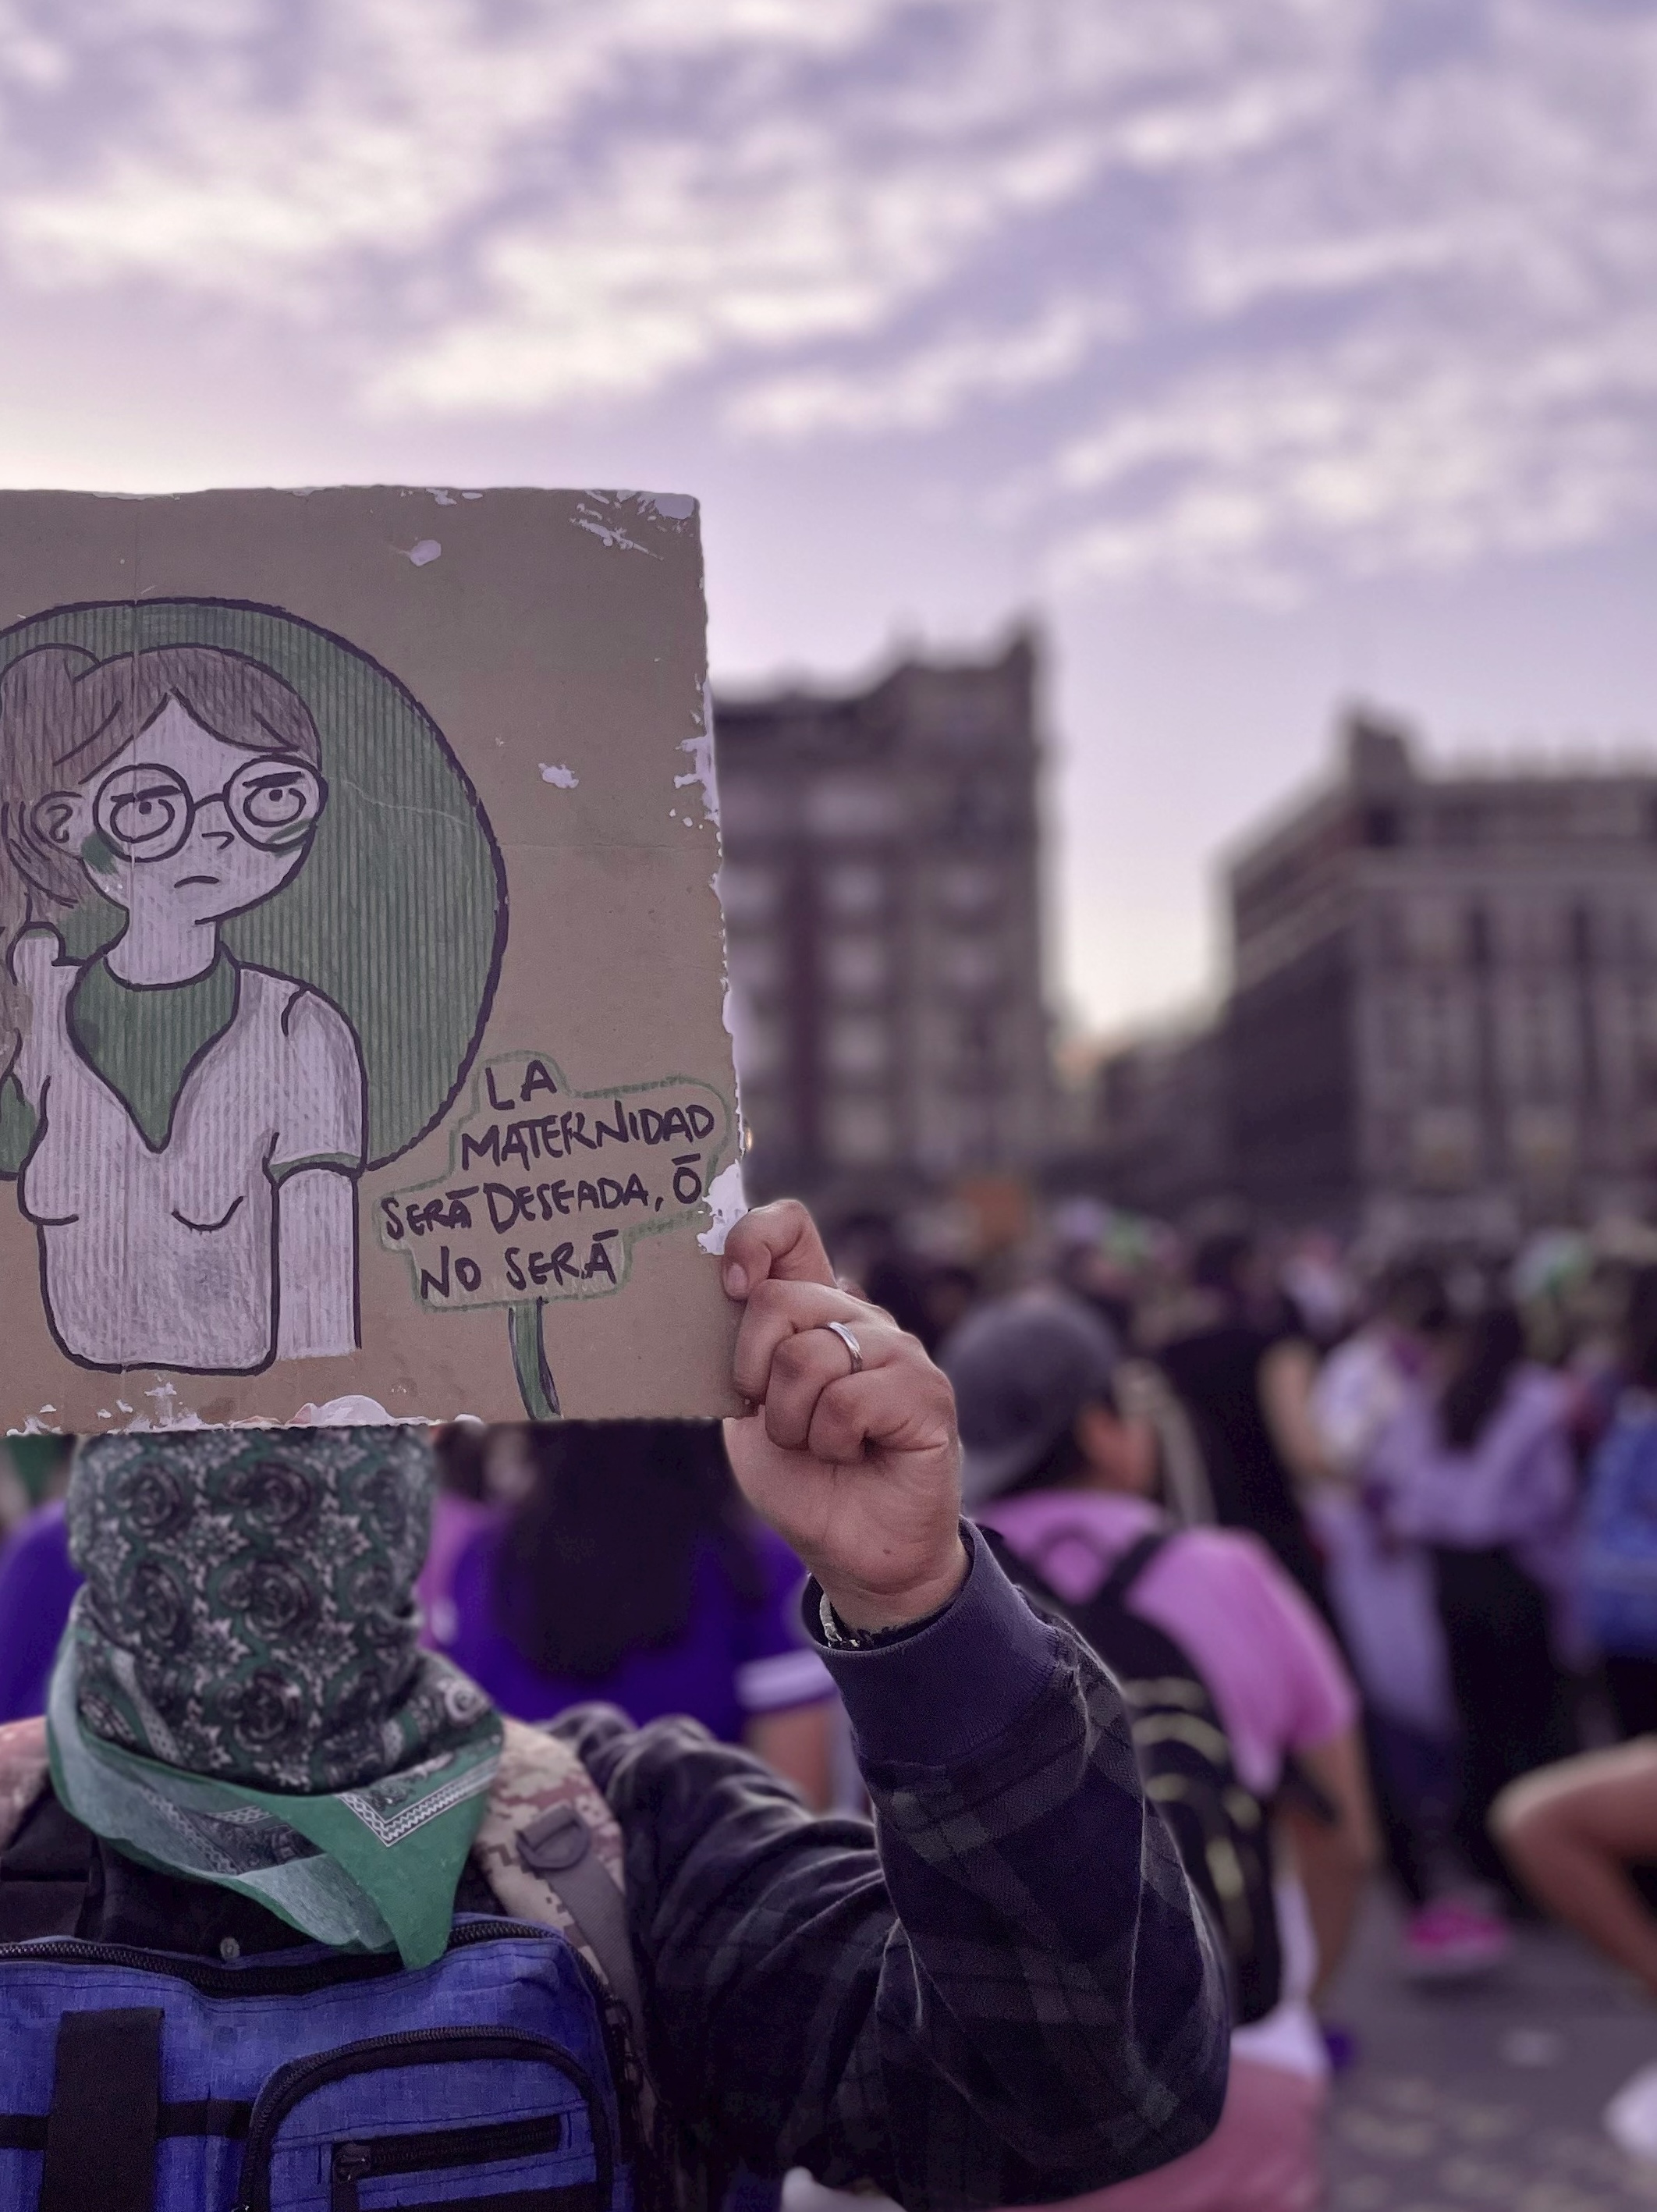 LA
MATERNIDAD
SERÁ DESEADA, Ó
NO SERÁ